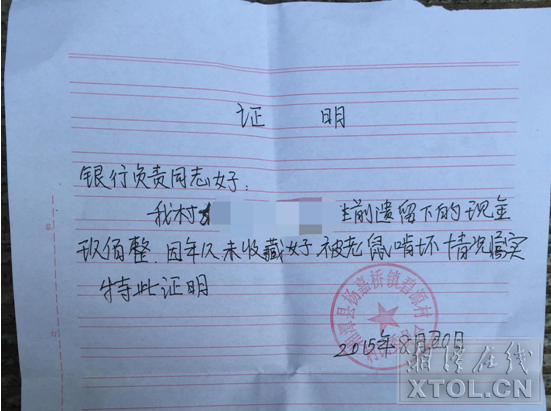 证 明
银行负责同志好:
我村 生前遗留下的现金
玖佰整,因年久未收藏好 被老鼠啃坏 情况属实
特此证明
湘潭县杨嘉桥镇碧源村
2015年8月20日
湘潭在线
XTOL.CN